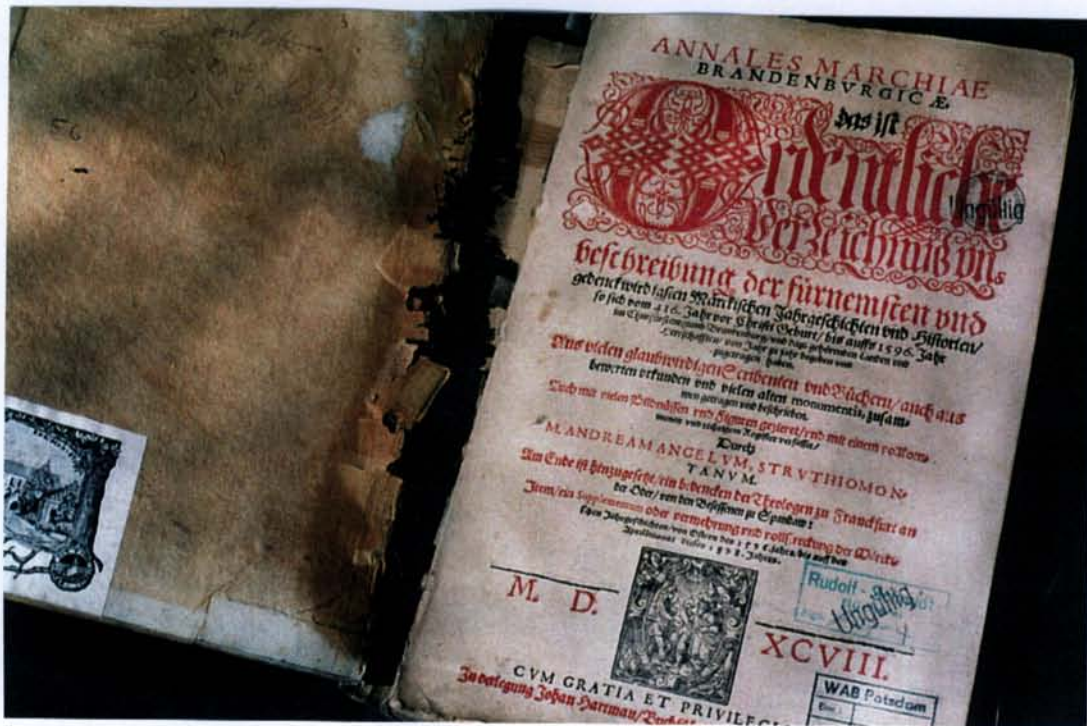 56
ANNALES MARCHIAE
BRANDENBVRGICÆ,
das ist
Ordentliche
Ungültig
Verzeichnus vn̄
beschreibung der fürnemsten vnd
gedenckwirdigsten Märckischen Jahrgeschichten vnd Historien/
so sich vom 416. Jahr vor Christi Geburt/ bis auffs 1596. Jahr
im Churfürstenthumb Brandenburg/ vnd dazu gehörenden Landen vnd
Herrschafften/ von Jahr zu jahr begeben vnd
zugetragen haben.
Aus vielen glaubwirdigen Scribenten vnd Büchern/ auch aus
bewerten vrkunden vnd vielen alten monumentis, zusam-
men getragen vnd beschrieben.
Auch mit vielen Bildnüssen vnd Figuren gezieret/ vnd mit einem vollkom-
menen vnd Register
Durch
M. ANDREAM ANGELVM, STRVTHIOMON-
TANVM.
Am Ende ist hinzugesetzt/ ein bedencken der Theologen zu Franckfurt an
der Oder/ von den Besessenen zu Spandaw:
Item/ ein Supplementum oder vermehrung vnd vollstreckung der Märcki-
schen Jahrgeschichten/ von Ostern des 1596. Jahrs/ bis auff den
dieses 1598. Jahres.
M. D.
XCVIII.
Rudolf -
Ungültig
CVM GRATIA ET PRIVILEGI
In verlegung Johan Hartman/
WAB Potsdam